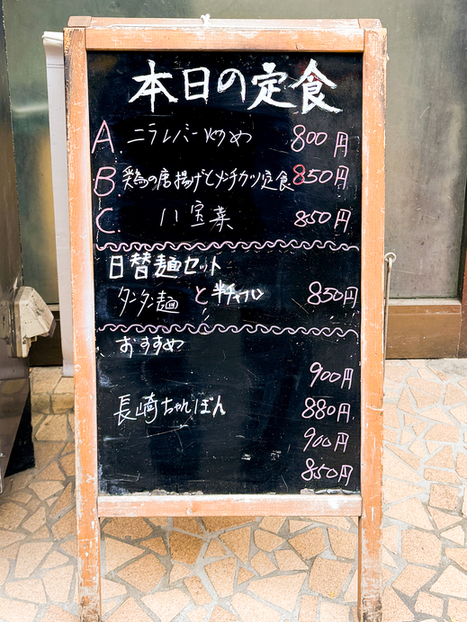 本日の定食
A. ニラレバー炒め 800円
B. 鶏の唐揚げとメンチカツ定食 850円
C. 八宝菜 850円
日替麺セット
タンタン麺 と 半チャーハン 850円
おすすめ
900円
長崎ちゃんぽん 880円
900円
850円